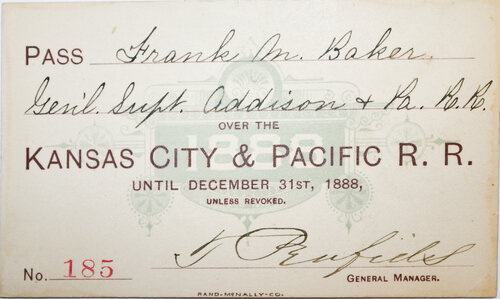 PASS Frank M. Baker
Gen'l. Supt. Addison & Pa. R. R.
OVER THE
1888
KANSAS CITY & PACIFIC R. R.
UNTIL DECEMBER 31ST, 1888,
UNLESS REVOKED.
No. 185
GENERAL MANAGER.
RAND-MCNALLY-CO.